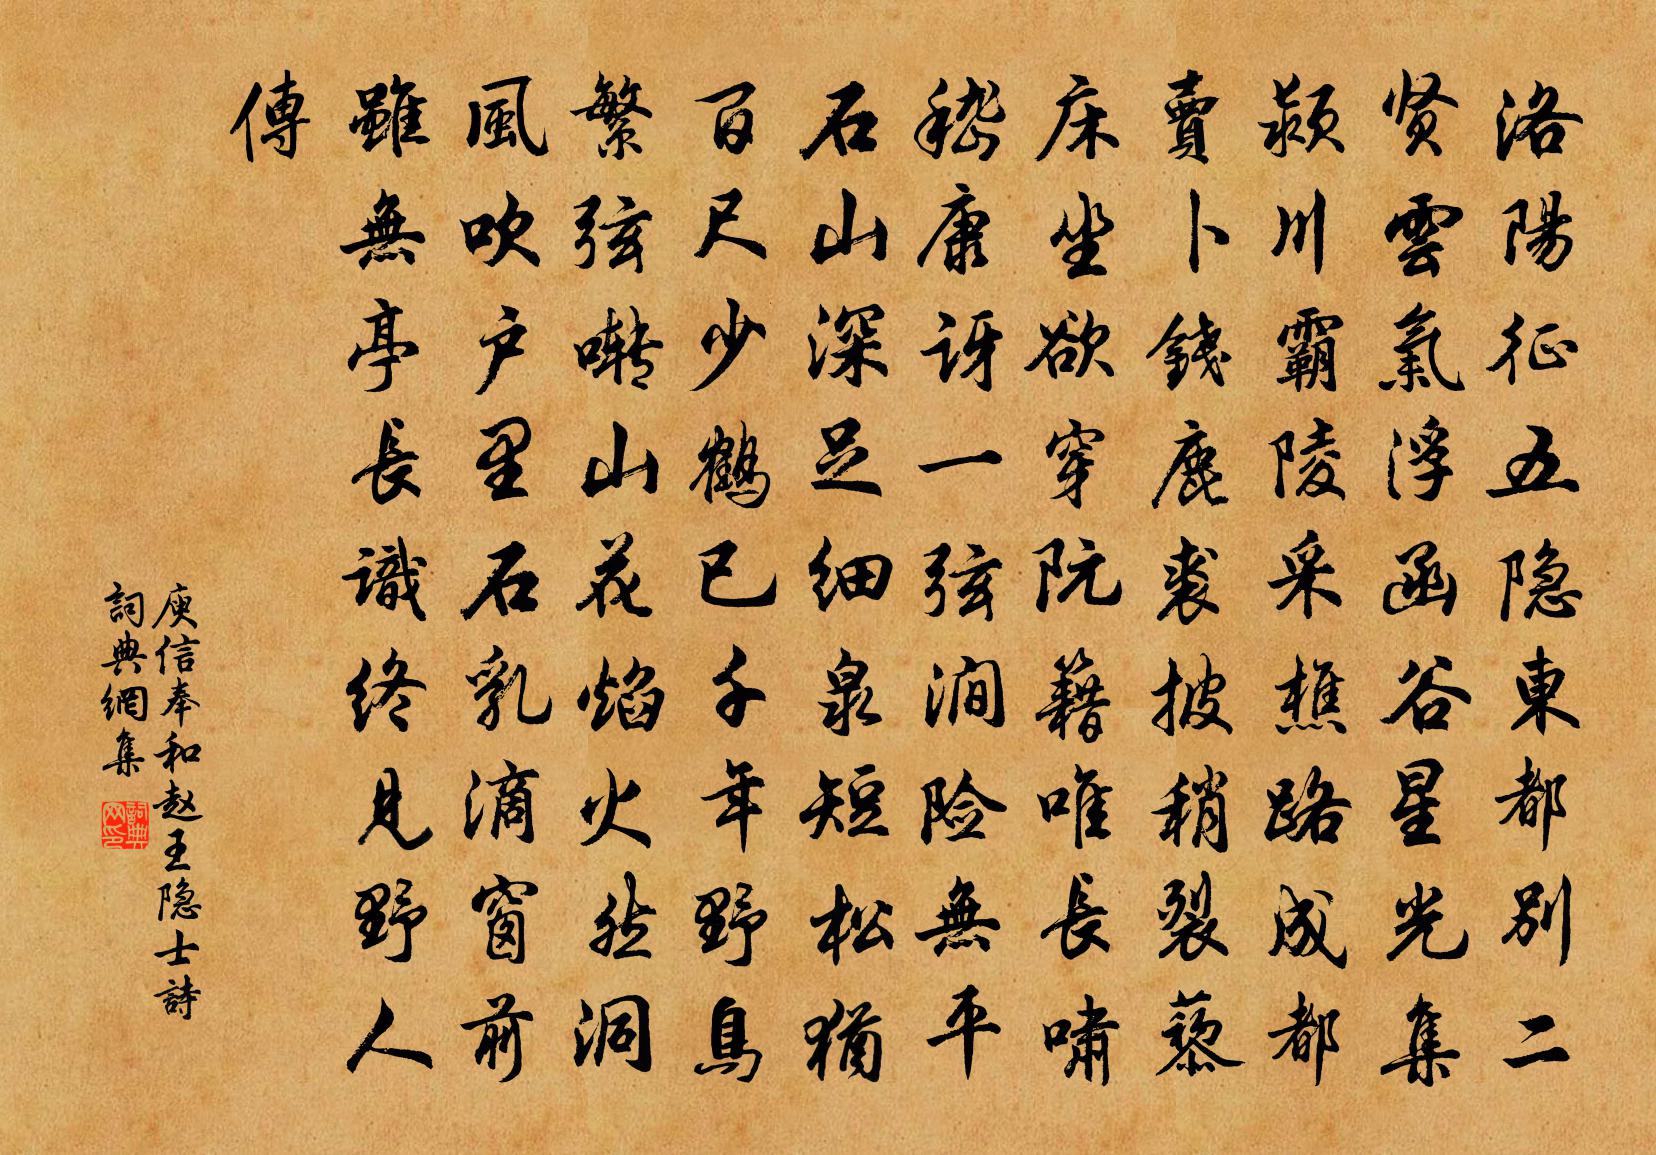 洛陽征五隐東都别二
贤雲氣浮函谷星光集
颍川霸陵采樵路成都
賣卜錢鹿裘披稍裂藜
床坐欲穿阮籍唯長嘯
嵇康讶一弦澗险無平
石山深足细泉短松猶
百尺少鶴已千年野鳥
繁弦囀山花焰火然洞
風吹户里石乳滴窗前
雖無亭長識终見野人
傳
庾信奉和赵王隐士詩
詞典網集
詞典网印